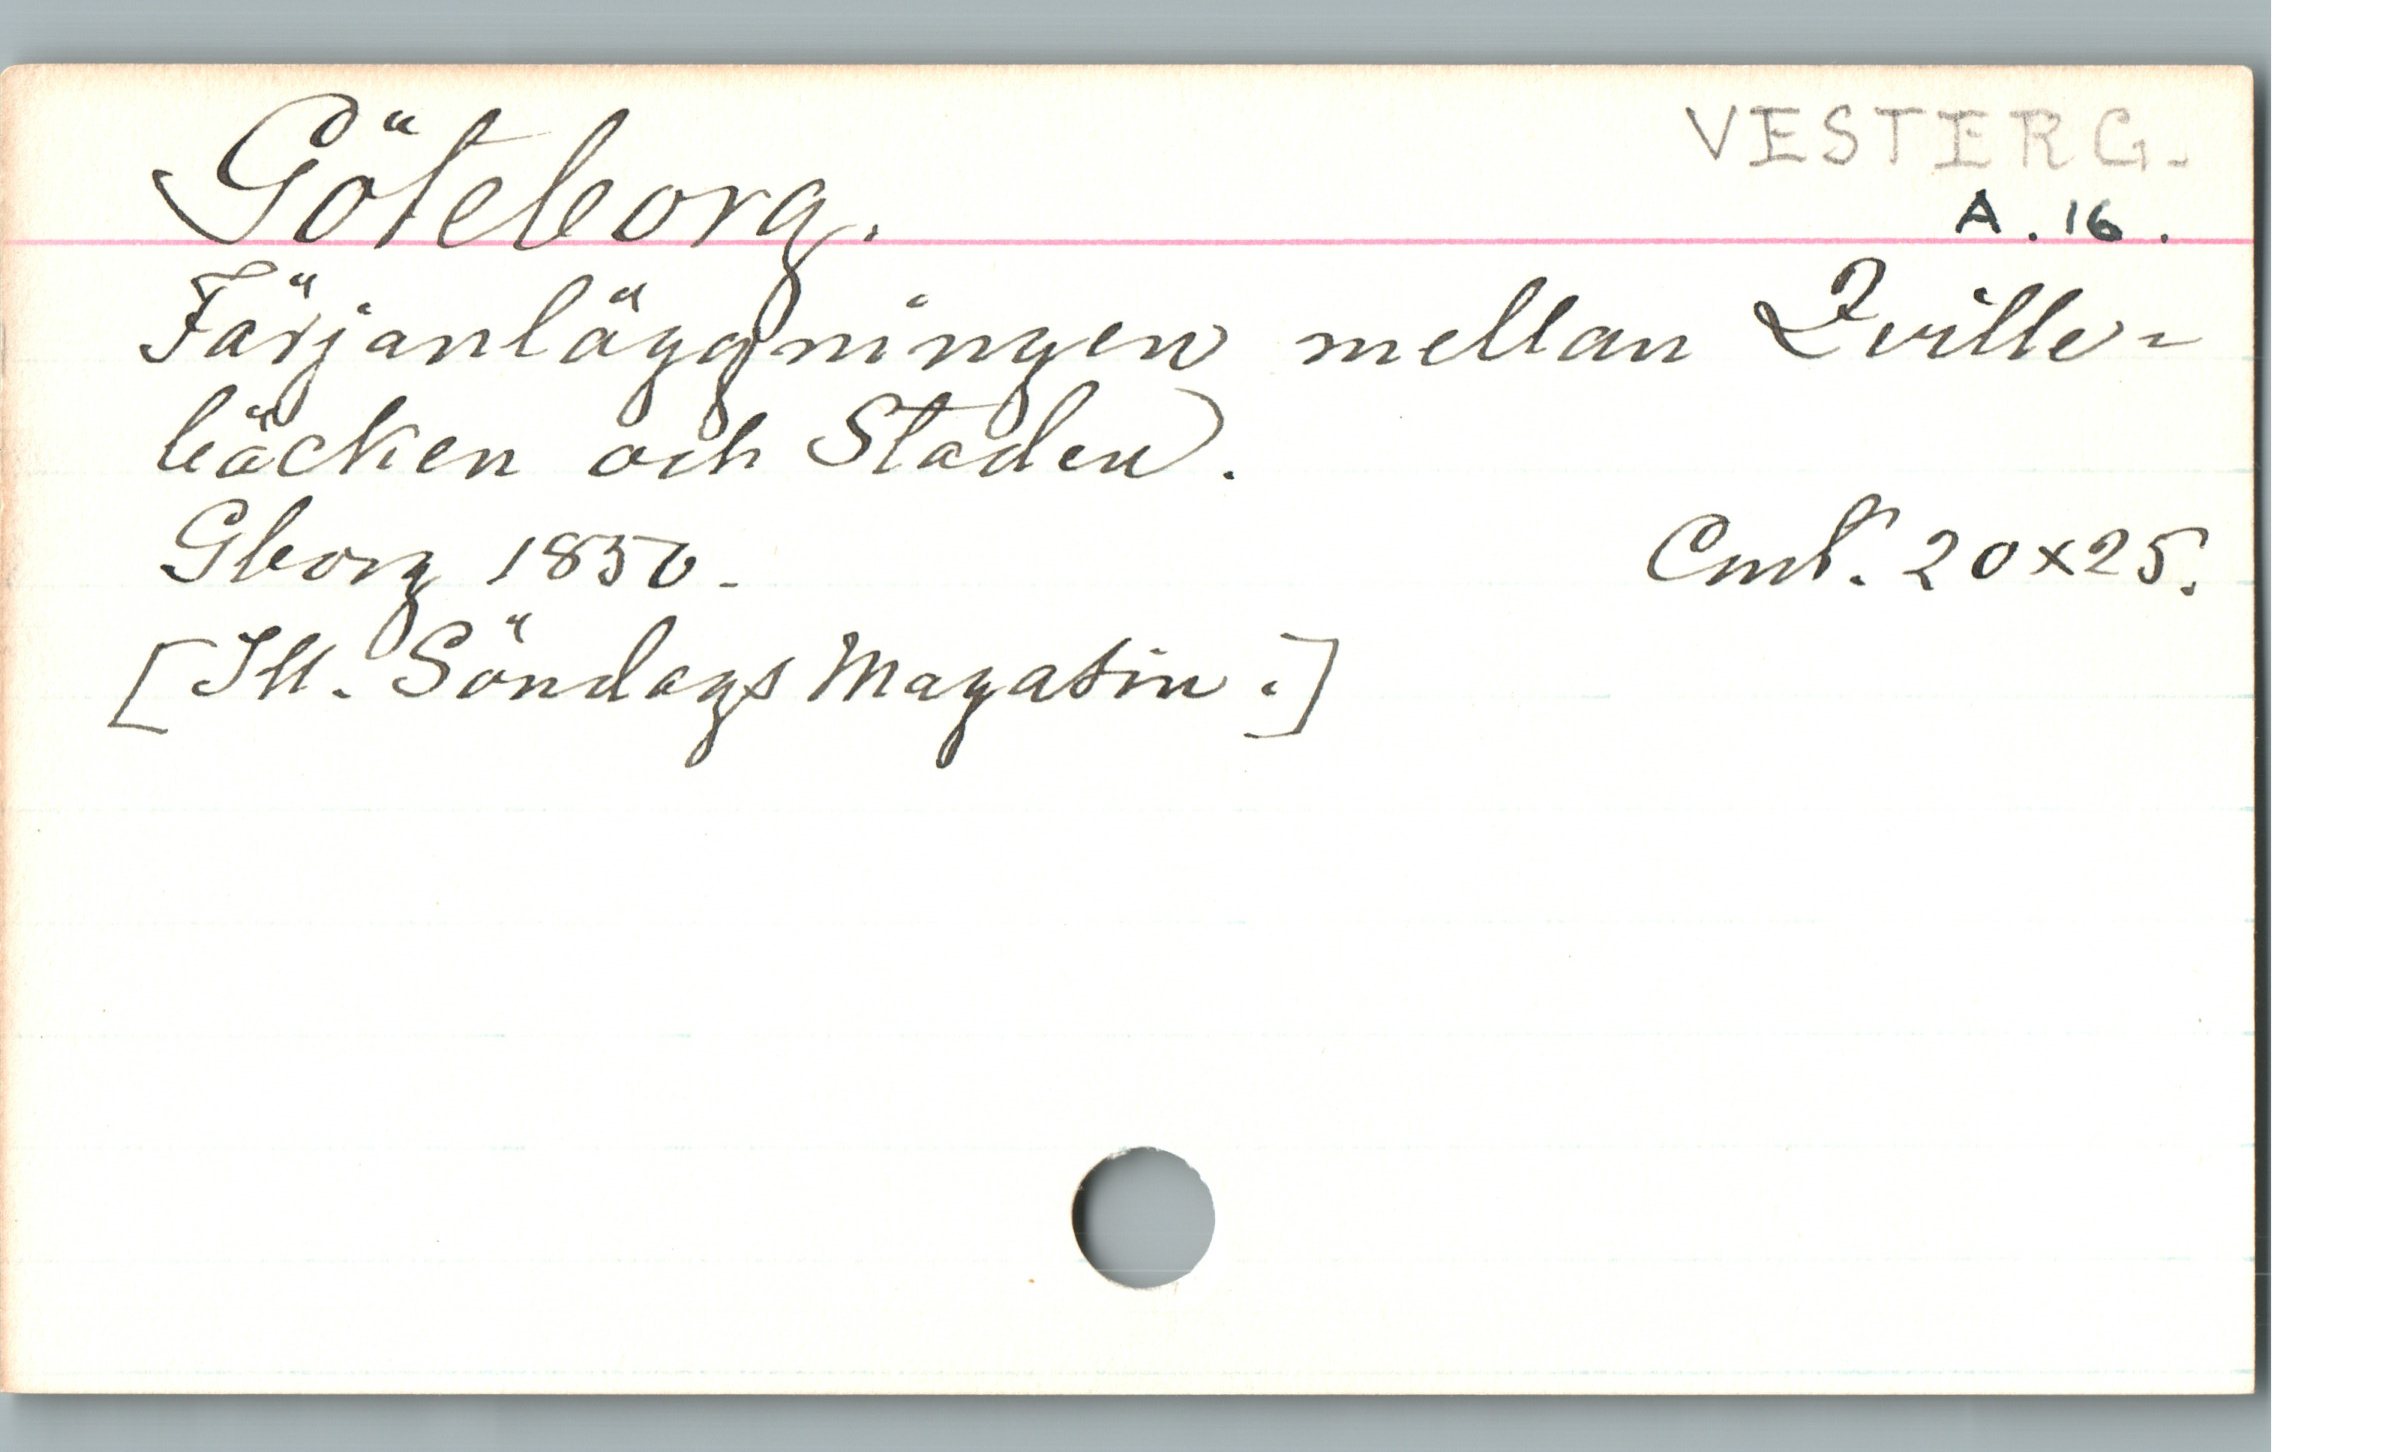 Göteborg.
VESTERG.
A. 16.
Färjanläggningen mellan Qville-
bäcken och Staden.
Gborg 1850. Cmt. 20x25.
[Ill. Söndags Magasin.]